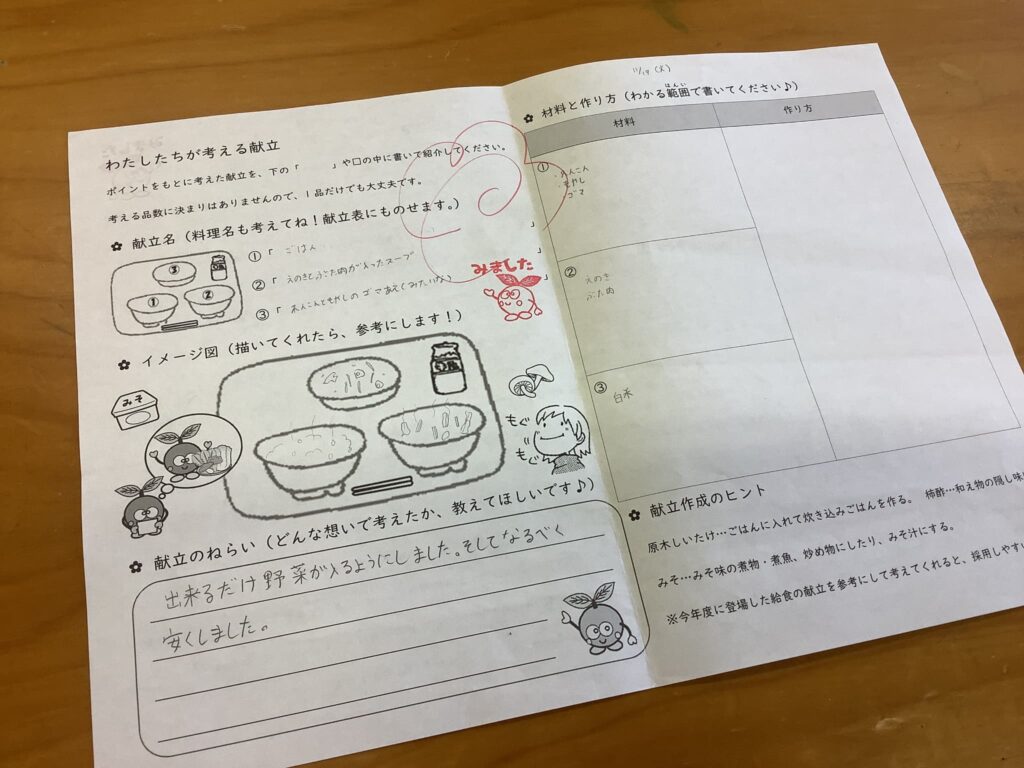 わたしたちが考える献立
ポイントをもとに考えた献立を、下の「　　」や□の中に書いて紹介してください。
考える品数に決まりはありませんので、1品だけでも大丈夫です。
✿ 献立名（料理名も考えてね！献立表にものせます。）
①「 ごはん 」
②「 えのきとぶた肉が入ったスープ 」
③「
③
①
②
みました
✿ イメージ図（描いてくれたら、参考にします！）
みそ
もぐ
もぐ
✿ 献立のねらい（どんな想いで考えたか、教えてほしいです♪）
出来るだけ野菜が入るようにしました。そしてなるべく
安くしました。
11/19（火）
✿ 材料と作り方（わかる範囲で書いてください♪）
はんい
材料
作り方
①
もやし
ゴマ
②
えのき
ぶた肉
③
白米
✿ 献立作成のヒント
原木しいたけ…ごはんに入れて炊き込みごはんを作る。 柿酢…和え物の隠し味
みそ…みそ味の煮物・煮魚、炒め物にしたり、みそ汁にする。
※今年度に登場した給食の献立を参考にして考えてくれると、採用しやすい